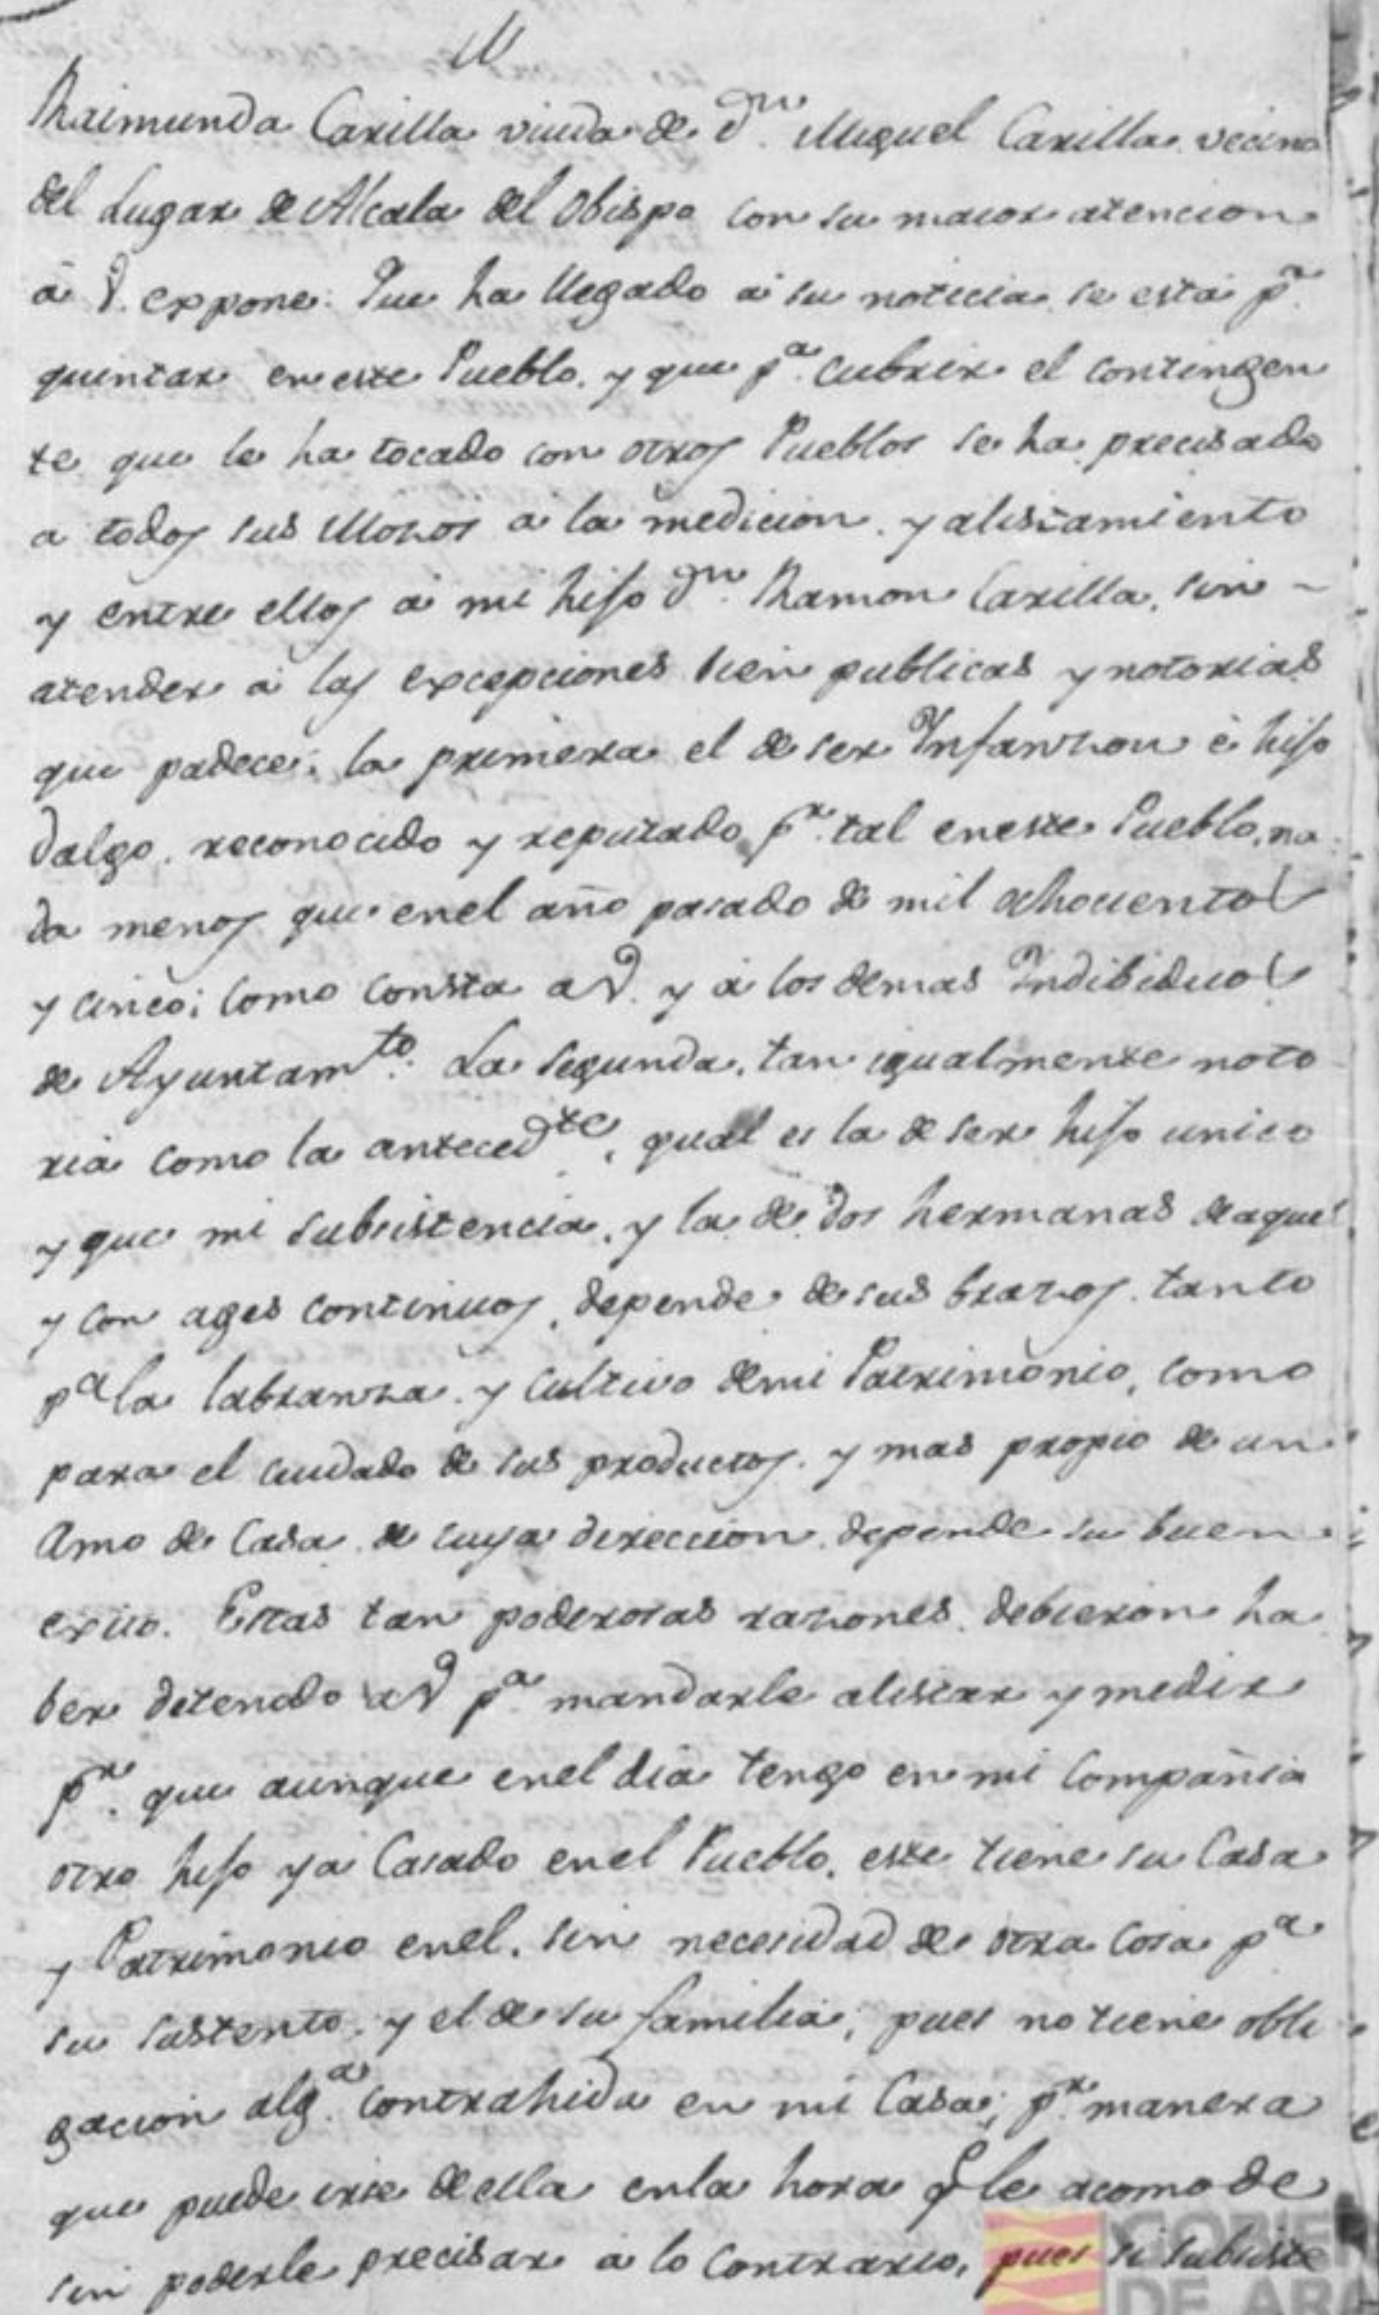 Raimunda Carilla viuda de Dn. Miguel Carilla vecina
del Lugar de Alcala del Obispo con su maior atencion
á V. expone: Que ha llegado á su noticia se está pa.
quintar en este Pueblo, y que pa. cubrir el contingen
te que le ha tocado con otros Pueblos se ha precisado
a todos sus Mozos a la medicion y alistamiento
y entre ellos á mi hijo Dn. Ramon Carilla, sin
atender á las excepciones bien publicas y notorias
que padece: la primera el de ser Infanzon é hijo
dalgo, reconocido y reputado pr. tal en este Pueblo, na
da menos que en el año pasado de mil ochocientos
y cinco; como consta a V. y á los demas Indibiduos
de Ayuntamto. La segunda, tan igualmente noto
ria como la antecedte, qual es la de ser hijo unico
y que mi subsistencia, y la de dos hermanas de aquel
y con ages continuos, depende de sus brazos, tanto
pa la labranza y cultivo de mi Patrimonio, como
para el cuidado de sus productos, y mas propio de un
Amo de Casa de cuya direccion depende su buen
exito. Estas tan poderosas razones debieron ha
ber detenido a V pa mandarle alistar y medir
pr. que aunque en el dia tengo en mi Compañia
otro hijo ya Casado en el Pueblo, este tiene su Casa
y Patrimonio en el, sin necesidad de otra cosa pa
su sustento, y el de su familia; pues no tiene obli
gacion alga. contrahida en mi Casa; pr. manera
que puede irse de ella en la hora q le acomode
sin poderle precisar a lo contrario, pues si subsiste
GOBIE
DE ARA